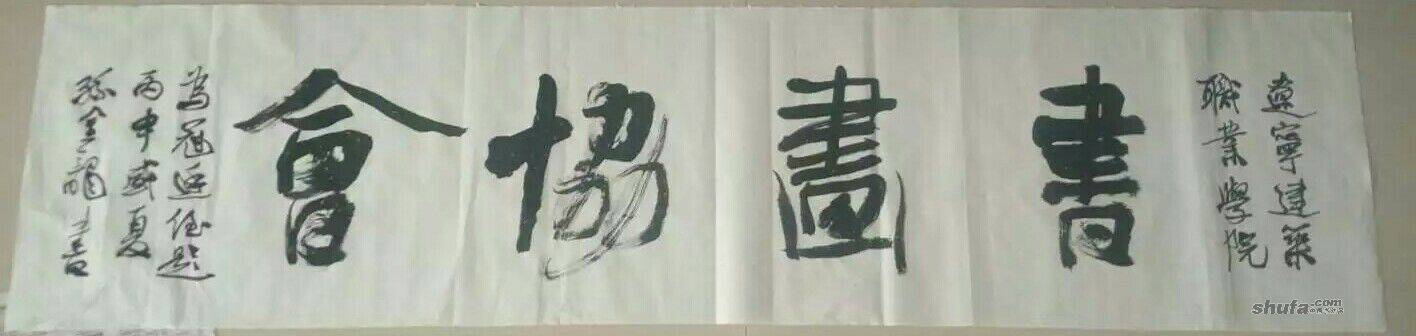 遼寧建築
職業學院
書畫協會
為冠廷侄題
丙申盛夏
孫金
shufa.com